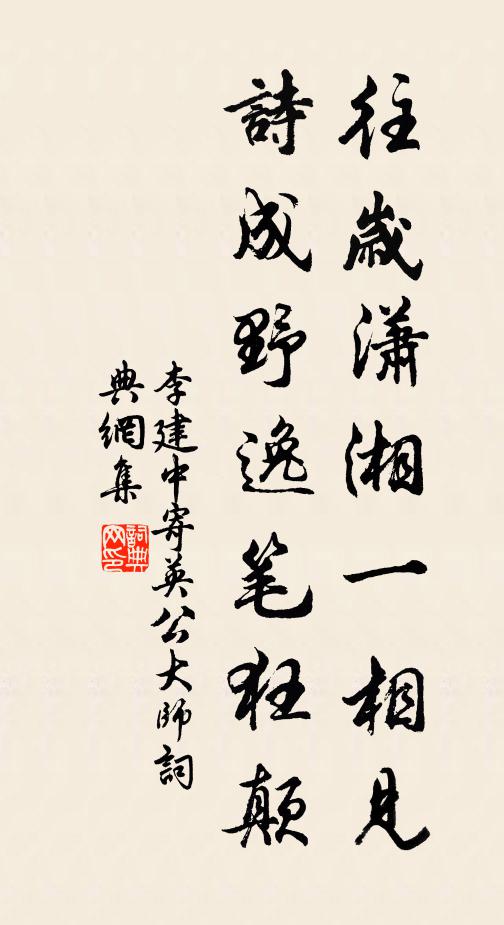 往歲瀟湘一相見
詩成野逸笔狂颠
李建中寄英公大師詞
典網集
詞典網印